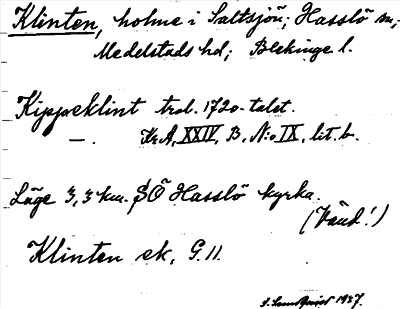 Klinten, holme i Saltsjön; Hasslö sn;
Medelstads hd; Blekinge l.
Kippeklint trol. 1720-talet.
— . Kr.A, XXIV, B, N:o IX, lit. b.
Läge 3,3 km. SÖ Hasslö kyrka.
(Vänd!)
Klinten ek, G.11.
1937.